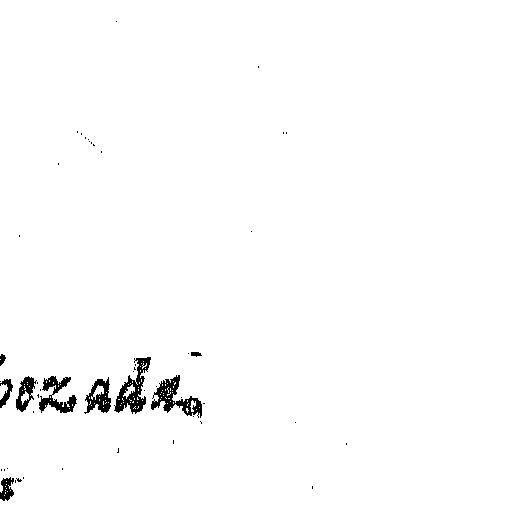 bezada.
s